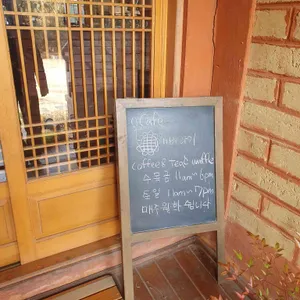 coffee & Tea & waffle
수목금 11am~6pm
토일 11am~7pm
매주 월화 쉽니다